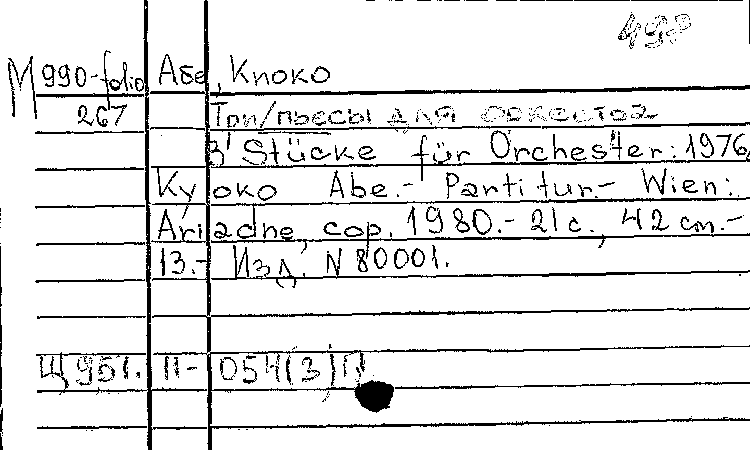 49?
М 990-folio Абе, Киоко
267 Три пьесы для оркестра
3 Stücke für Orchester: 1976
Kyoko Abe.- Partitur.- Wien:
Ariadne, cop. 1980.- 21 с., 42 cm.-
13.- Изд. N 80001.
Щ 951. II- 054(3)П